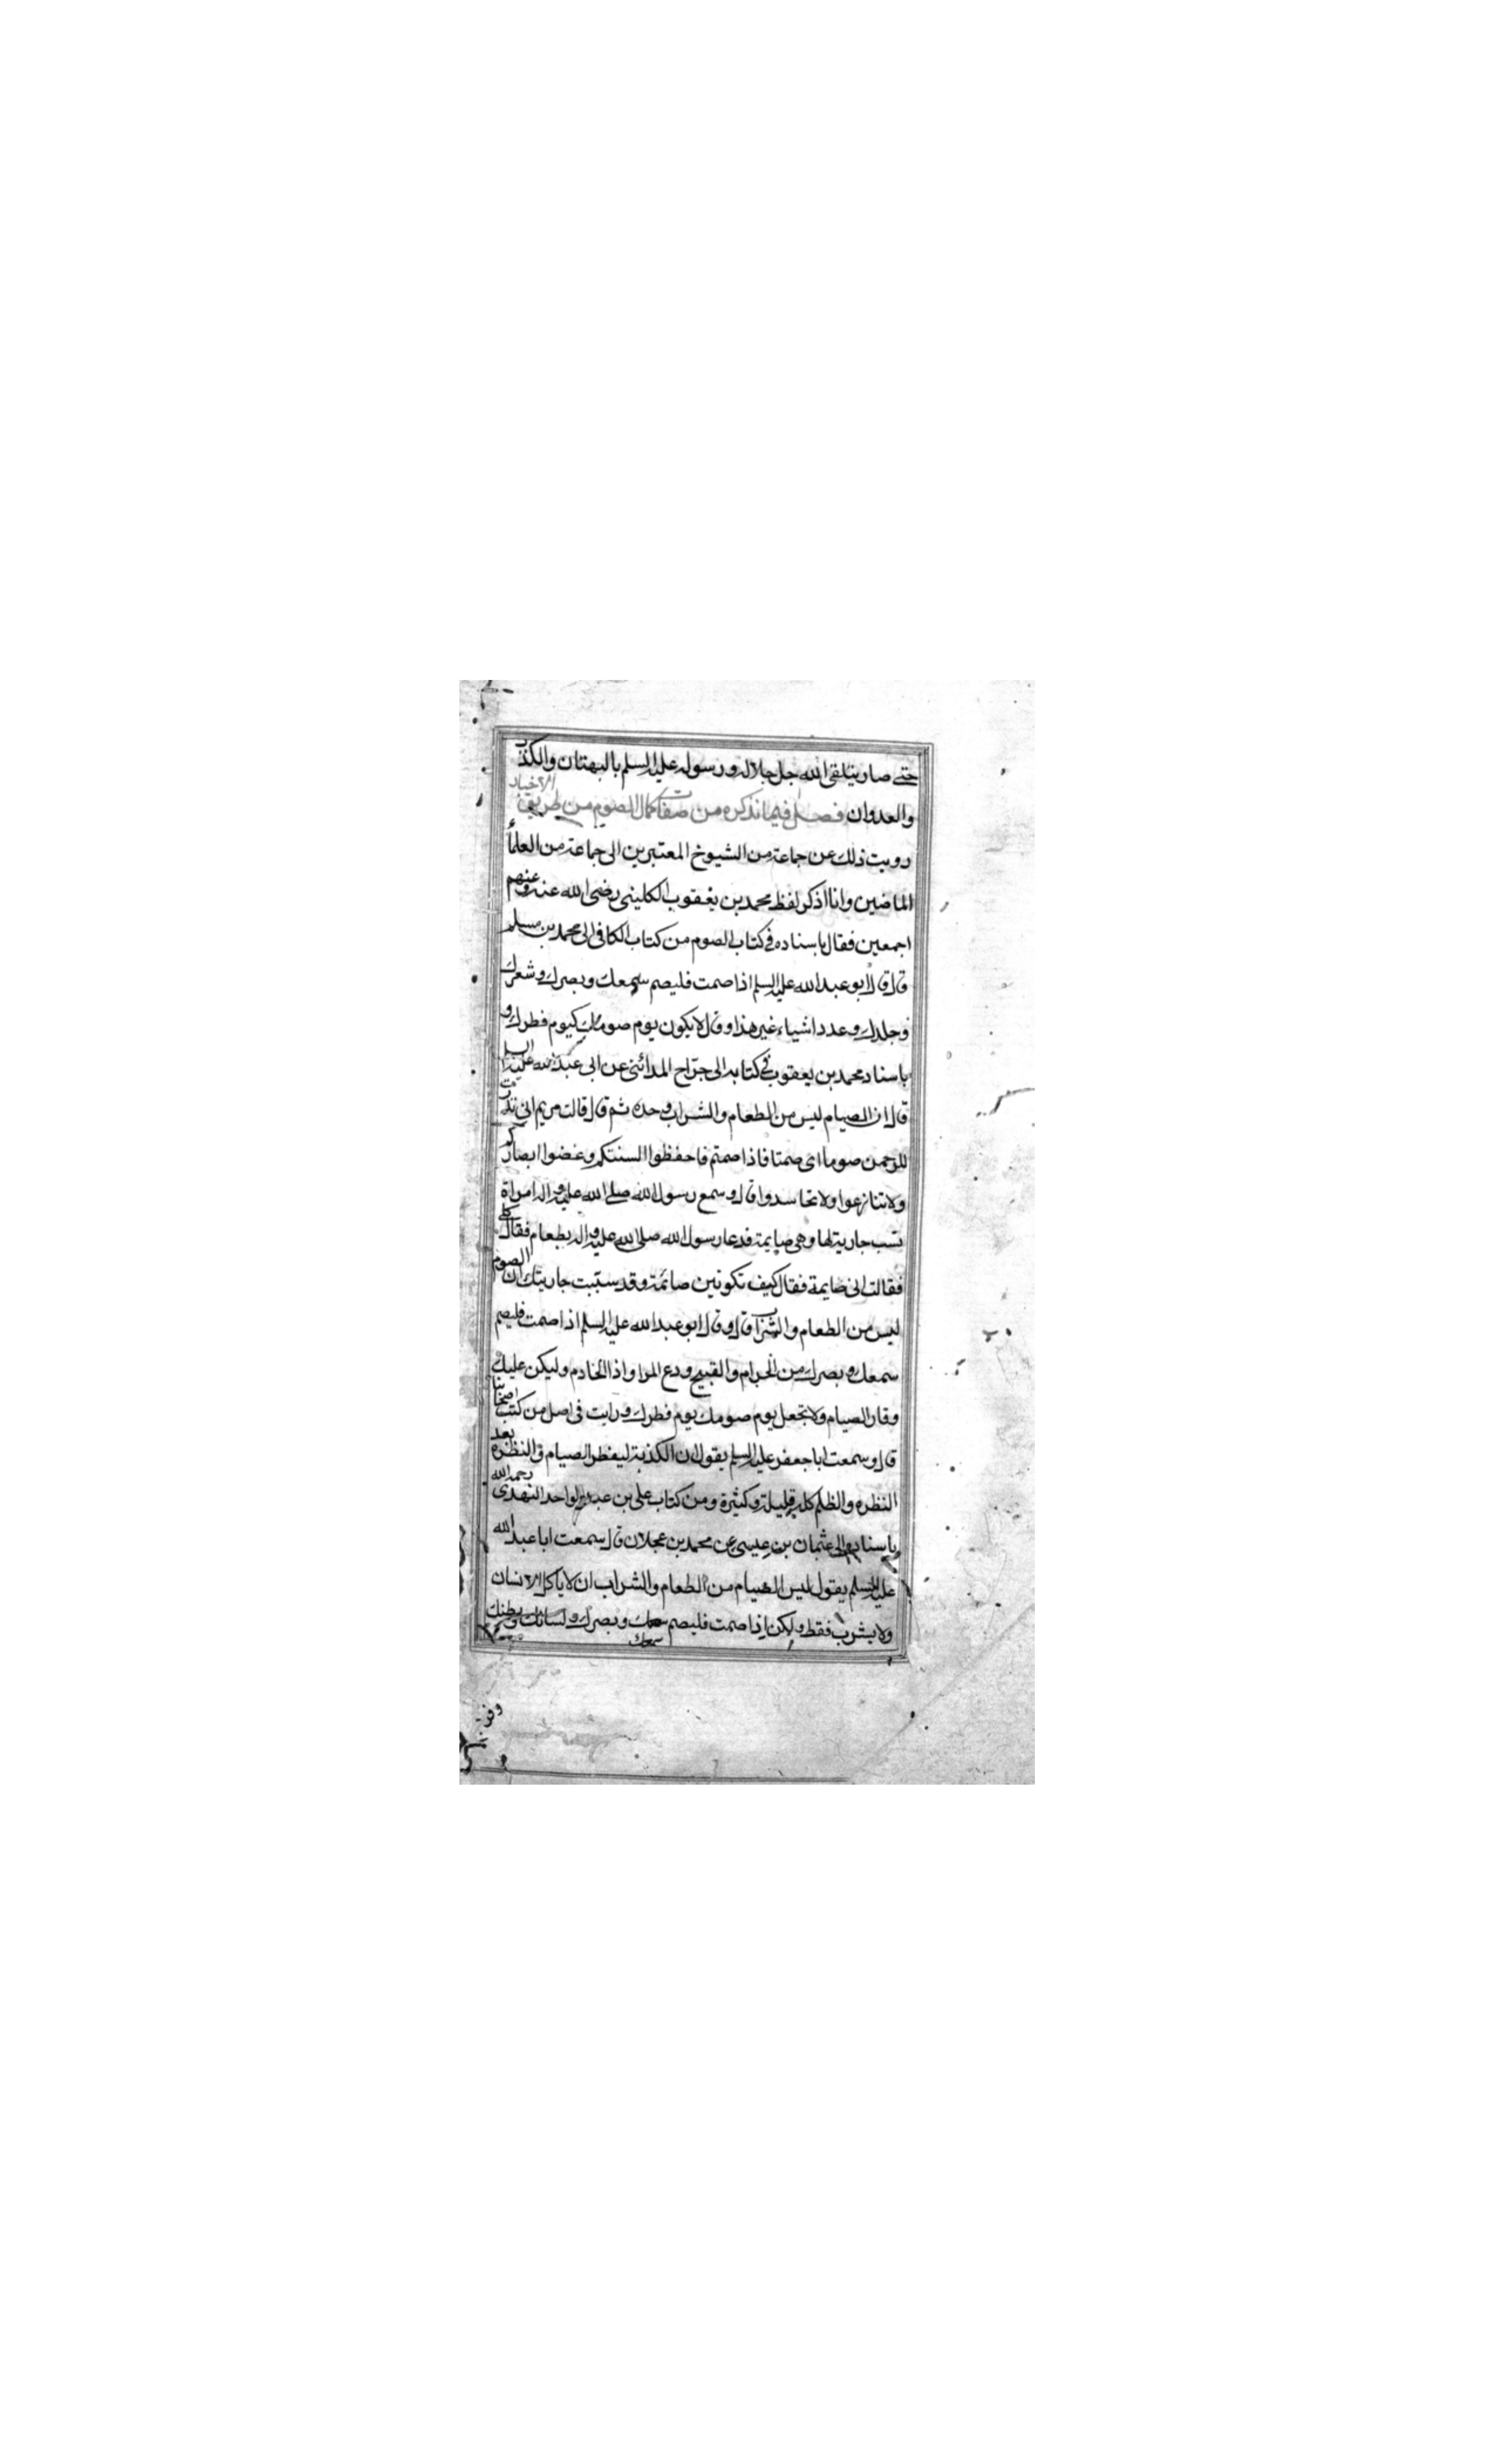 حتى صار يتلقى الله جل جلاله ورسوله عليه السلم بالبهتان والكذب
والعدوان فصل فيما نذكره من صفات كمال الصوم من طريق الاخبار
رويت ذلك عن جماعة من الشيوخ المعتبرين الى جماعة من العلمأ
الماضين وانا اذكر لفظ محمد بن يعقوب الكلينى رضى الله عنه وعنهم
اجمعين فقال باسناده فى كتاب الصوم من كتاب الكافى الى محمد بن مسلم
قال قال ابو عبد الله عليه السلم اذا صمت فليصم سمعك وبصرك وشعرك
وجلدك وعدد اشياء غير هذا وقال لا يكون يوم صومك كيوم فطرك و
باسناد محمد بن يعقوب فى كتابه الى جرّاح المدائنى عن ابى عبد الله عليه السلم
قال ان الصيام ليس من الطعام والشراب وحده ثم قال قالت مريم انى نذرت
للرحمن صوما اى صمتا فاذا صمتم فاحفظوا السنتكم وغضوا ابصاركم
ولا تنازعوا ولا تحاسدوا قال وسمع رسول الله صلى الله عليه واله امراة
تسب جارية لها وهى صايمة فدعا رسول الله صلى الله عليه واله بطعام فقال كلى
فقالت انى صايمة فقال كيف تكونين صائمة وقد سببت جاريتك ان الصوم
ليس من الطعام والشراب قال وقال ابو عبد الله عليه السلم اذا صمت فليصم
سمعك وبصرك من الحرام والقبيح ودع المرا واذا الخادم وليكن عليك
وقار الصيام ولا تجعل يوم صومك يوم فطرك ورايت فى اصل من كتب اصحابنا
قال وسمعت ابا جعفر عليه السلم يقول ان الكذبة ليفطر الصيام والنظرة بعد
النظره والظلم كله قليله وكثيرة ومن كتاب على بن عبد الواحد النهدى رحمه الله
باسناده الى عثمان بن عيسى عن محمد بن عجلان قال سمعت ابا عبد الله
عليه السلم يقول ليس الصيام من الطعام والشراب ان لا ياكل الانسان
ولا يشرب فقط ولكن اذا صمت فليصم سمعك وبصرك ولسانك وبطنك
سمعك
وفر